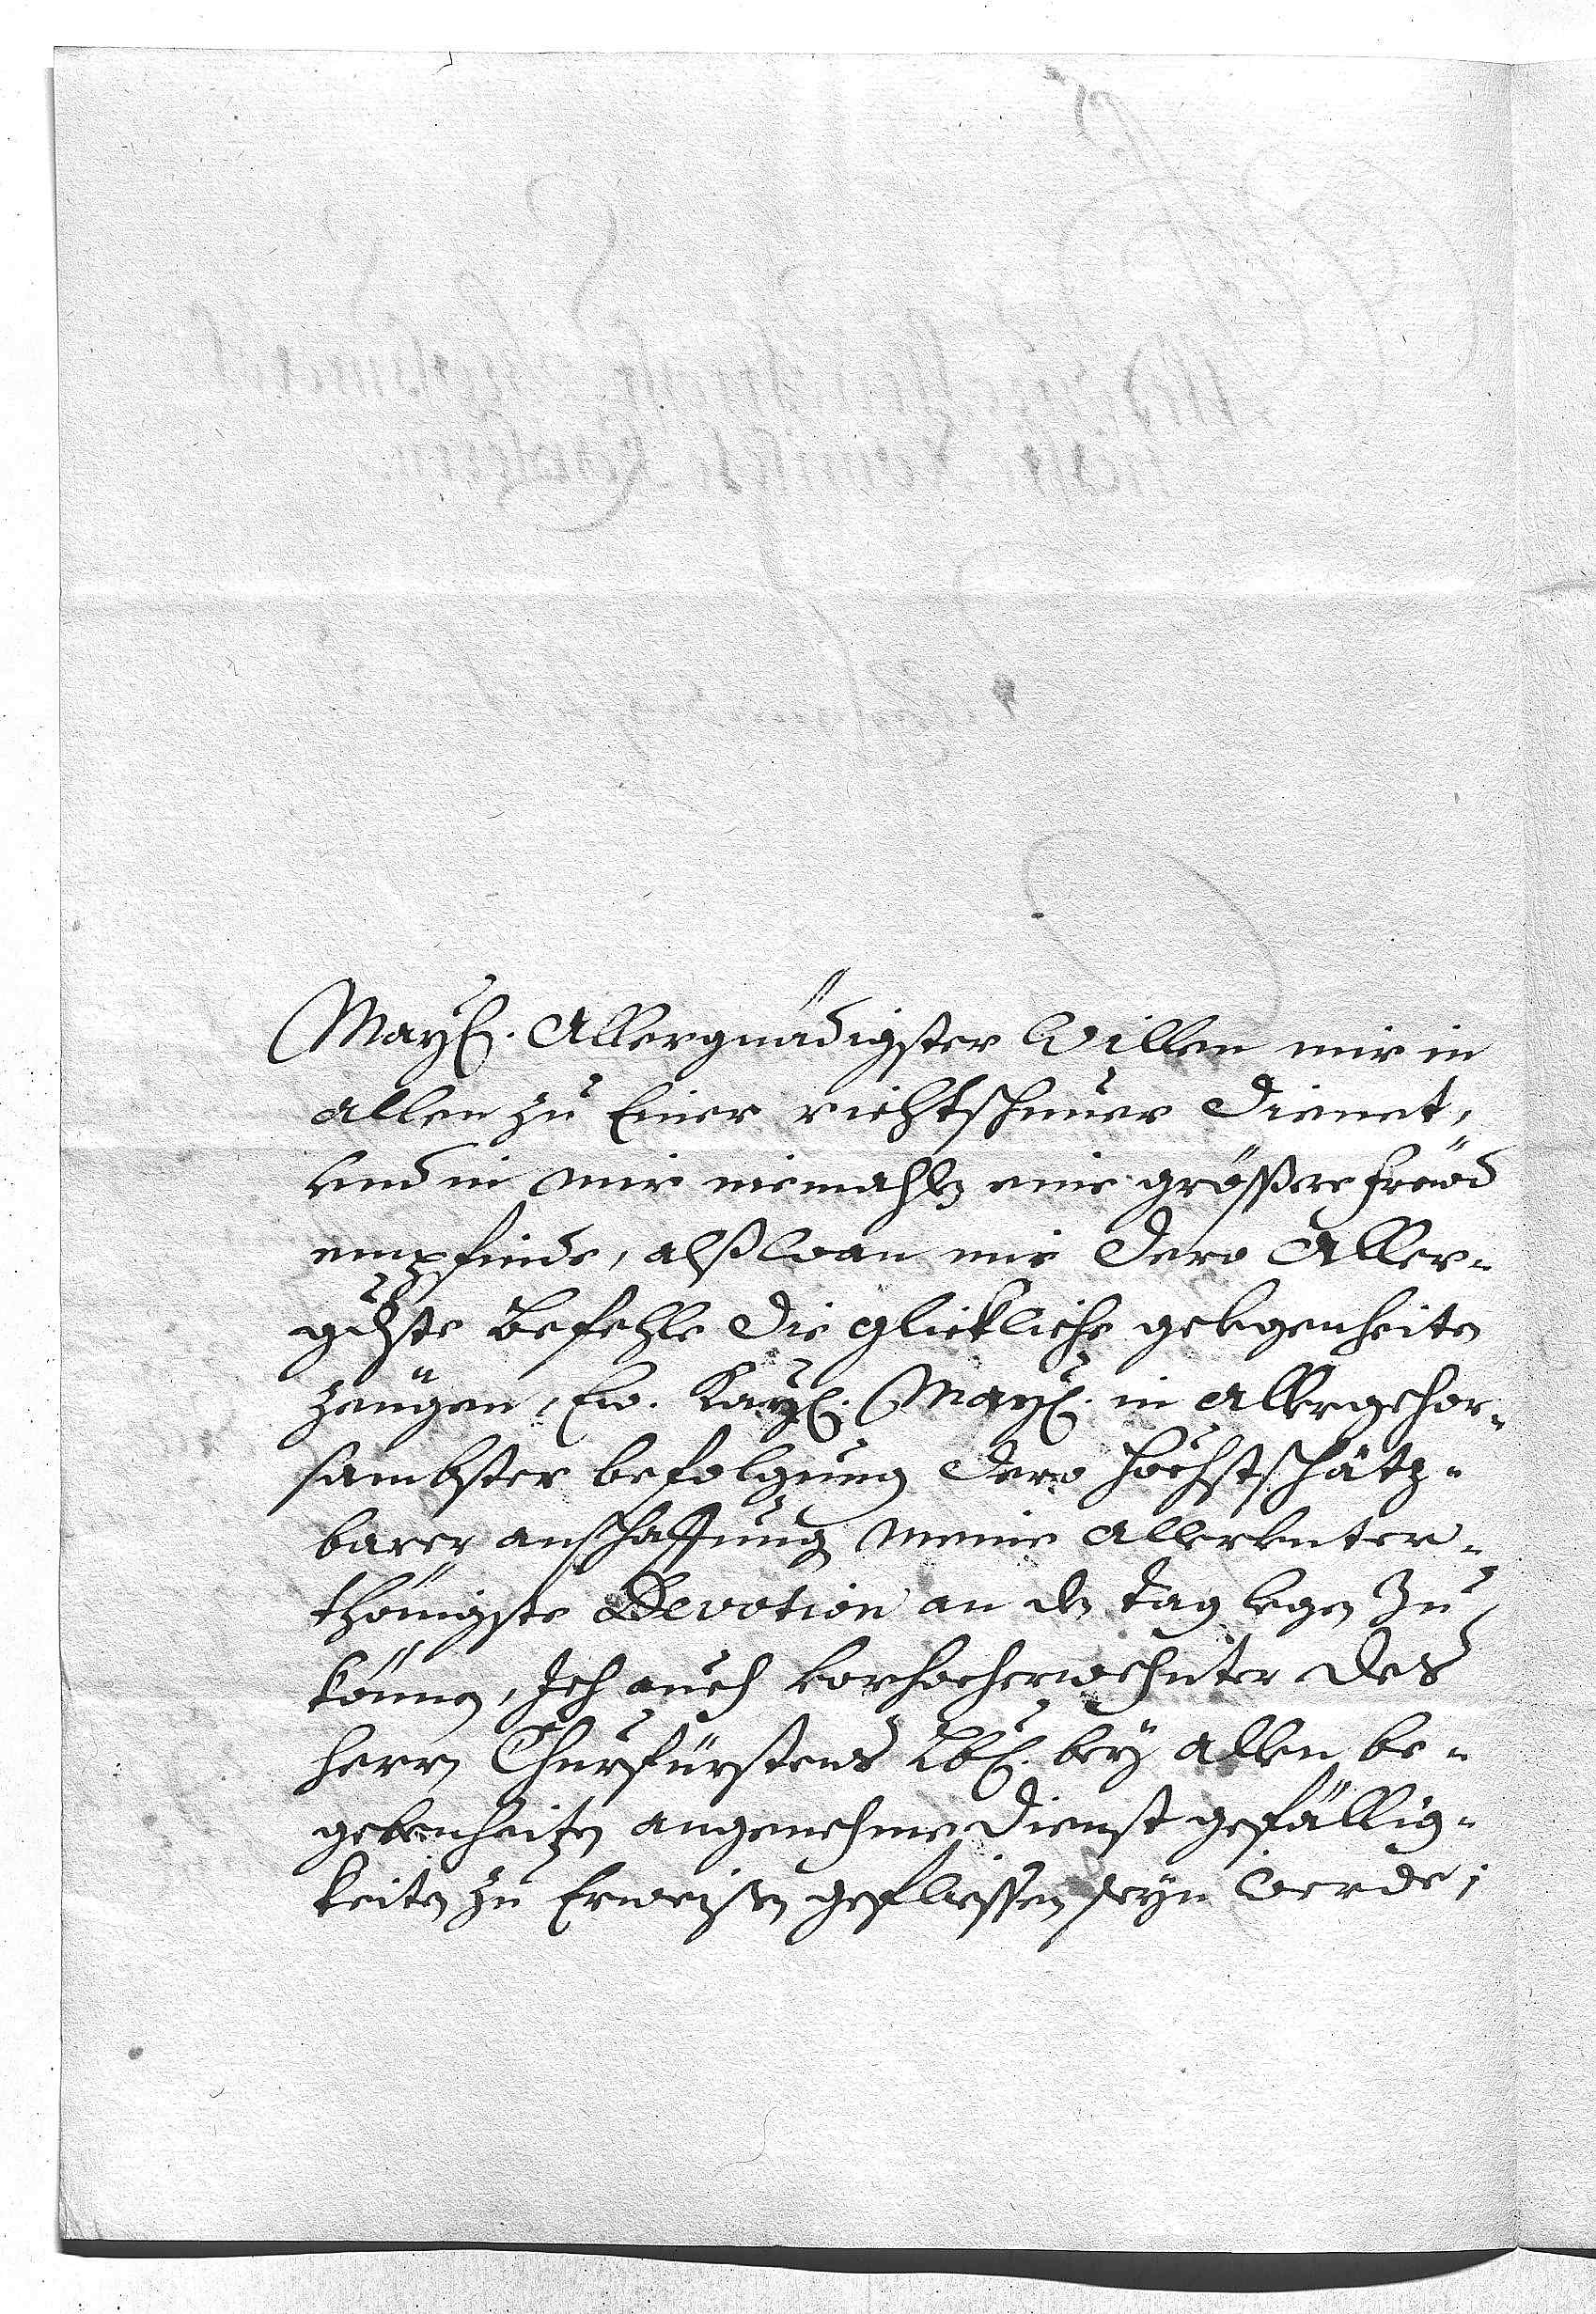 May. Allergnädigster Willen mir in
allen zu Einer richtschnuer dienet,
und in mir niemahls eine größere freüd
empfinde, alß wan mir dero Aller-
gdste Befehle die glickliche gelegenheiten
zeügen, Ew. Kay. May. in Allergehor-
sambster befolgung dero höchstschätz-
barer anschaffung meine allerunter-
thönigste Devotion an den tag legen zu
können, Ich auch vorhocherwehnter des
herrn Churfürstens Lbd. bey allen be-
gebenheiten angenehme dienst gefällig-
keiten zu Erweisen geflissen seyn werde;